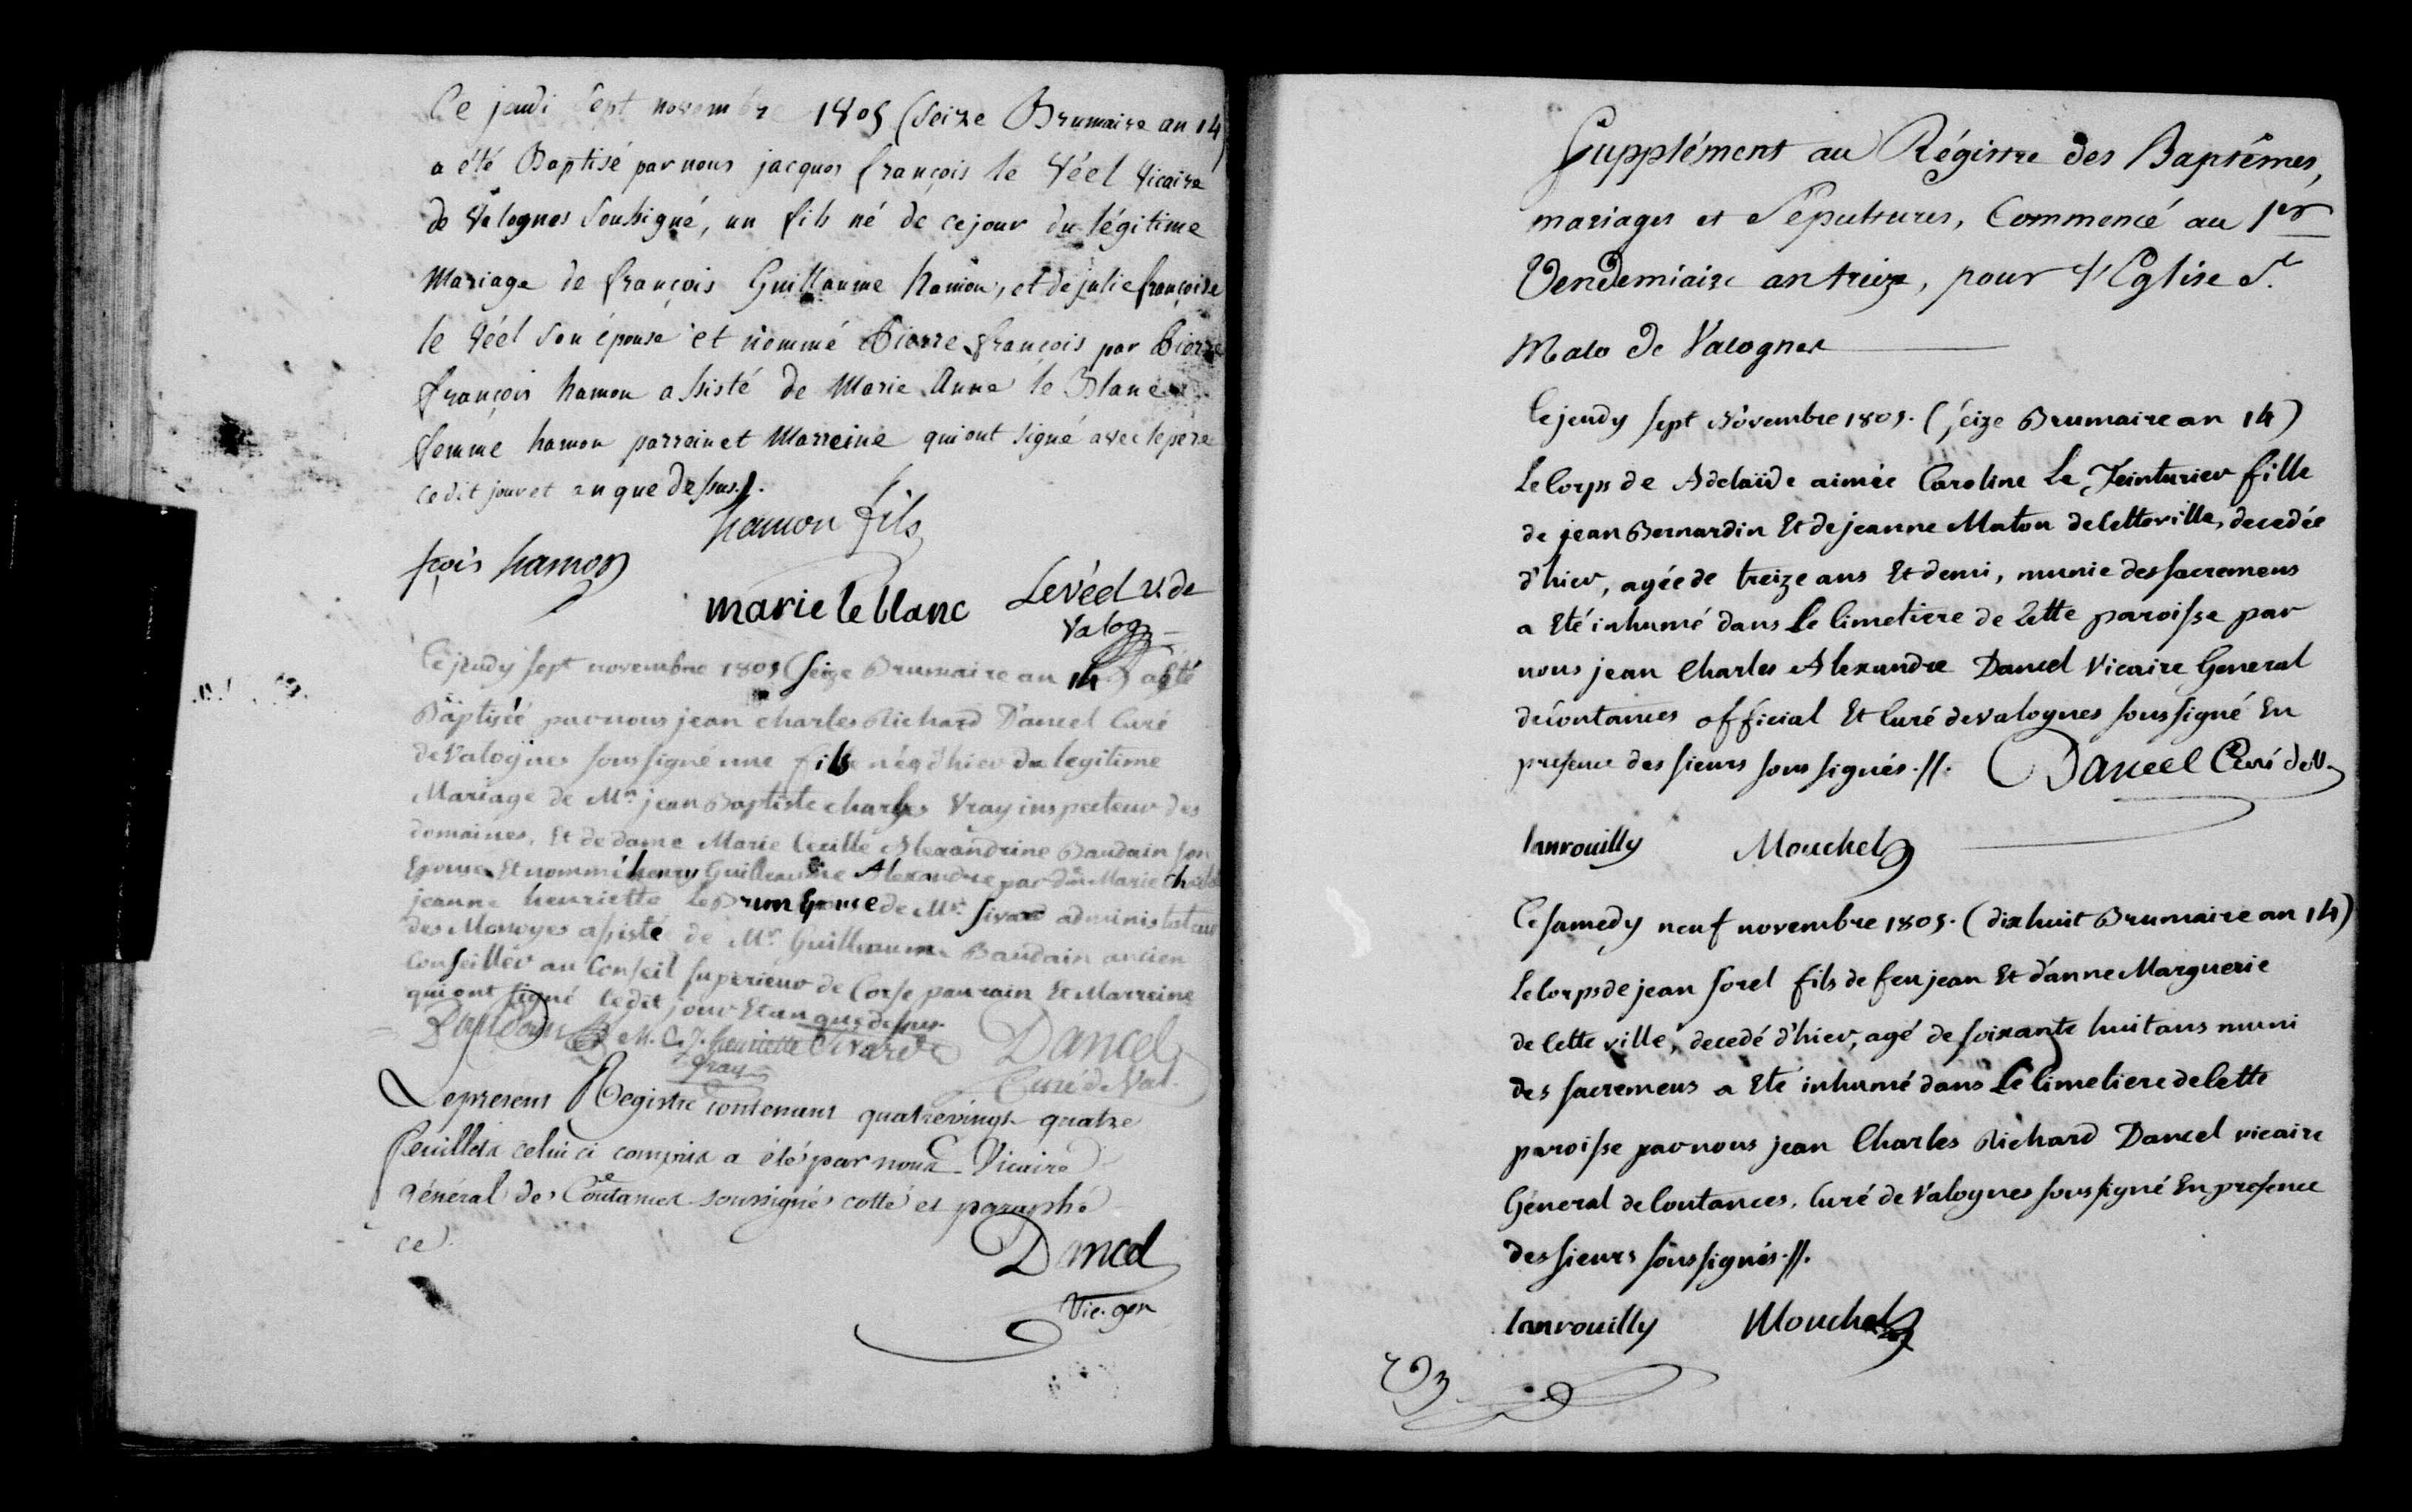 Ce jeudi Sept novembre 1805 (Seize Brumaire an 14)
a été Baptisé par nous jacques françois le Véel Vicaire
de Valognes Soussigné, un fils né de ce jour du légitime
Mariage de françois Guillaume hamon, et de julie françoise
le Véel son épouse et nommé Pierre françois par Pierre
françois hamon assisté de Marie Anne le Blanc
femme hamon parrain et Marreine qui ont signé avec le pere
ce dit jour et an que dessus //.
hamon fils
fçois hamon
marie le blanc
Levéel v. de
Valog
Ce jeudy sept novembre 1805 (seize Brumaire an 14) a Eté
Baptisée par nous jean charles Richard Dancel Curé
de Valognes soussigné une fille née d'hier du legitime
Mariage de Mr. jean Baptiste charles Vray inspecteur des
domaines, Et de dame Marie Cecille Alexandrine Baudain son
Epouse Et nommé henry Guilleaume Alexandre par dme Marie
jeanne henriette Le Brun Epouse de Mr. Sivard administrateur
des Monoyes assisté de Mr. Guillaume Baudain ancien
Conseiller au Conseil superieur de Corse parrain Et Marreine
qui ont signé ledit jour Et an que dessus.
Baudain M. C. J. henriette Sivard Dancel
Vray
Curé de Val.
Le présent Registre contenant quatrevingt quatre
feuillets celui ci compris a été par nous Vicaire
Général de Coutances soussigné cotté et paraphé
ce
Dancel
Vic. gen
Supplément au Régistre des Baptêmes,
mariages et Sépultures, Commencé au 1er
Vendemiaire an treize, pour l'Eglise St.
Malo de Valognes
Ce jeudy sept Novembre 1805. (seize Brumaire an 14)
Le Corps de Adelaïde aimée Caroline Le Teinturier fille
de jean Bernardin Et de jeanne Maton de Cette ville, decedée
d'hier, agée de treize ans Et demi, munie des sacremens
a Eté inhumé dans Le Cimetiere de Cette paroisse par
nous jean Charles Alexandre Dancel Vicaire General
de Coutances official Et Curé de valognes soussigné En
presence des sieurs soussignés. //. Dancel Curé de V.
Lanrouilly Mouchel
Ce samedy neuf novembre 1805. (dix huit Brumaire an 14)
Le Corps de jean Sorel fils de feu jean Et d'anne Marguerie
de Cette ville, decedé d'hier, agé de soixante huit ans muni
des sacremens a Eté inhumé dans Le Cimetiere de Cette
paroisse par nous jean Charles Richard Dancel vicaire
Géneral de Coutances, Curé de Valognes soussigné En presence
des sieurs soussignés. //.
Lanrouilly Mouchel